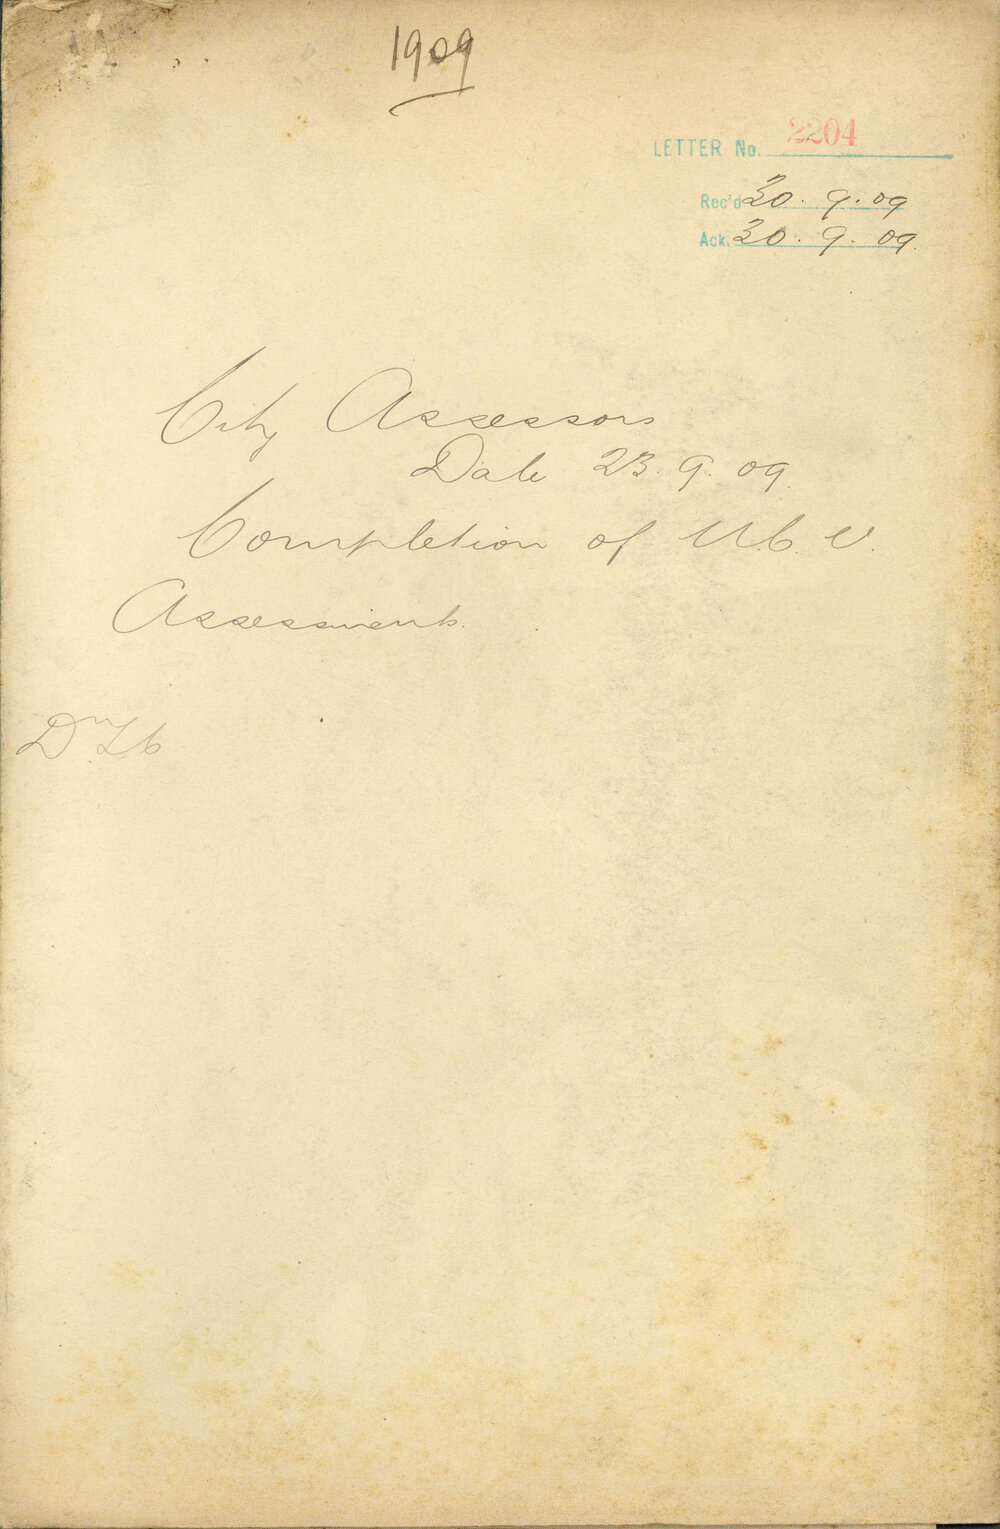 1909
LETTER No. 2204
Rec'd 30. 9. 09
Ack. 30. 9. 09.
City Assessors
Date 23. 9. 09.
Completion of U.C.V.
Assessment.